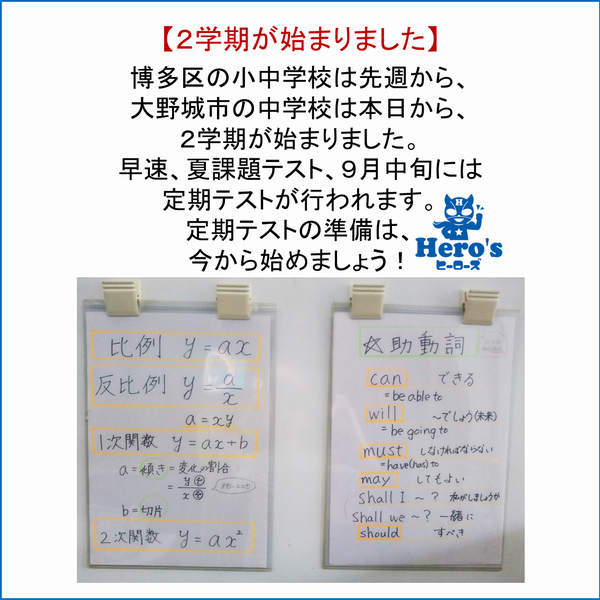 【２学期が始まりました】
博多区の小中学校は先週から、
大野城市の中学校は本日から、
２学期が始まりました。
早速、夏課題テスト、９月中旬には
定期テストが行われます。
定期テストの準備は、
今から始めましょう！
H
Hero's
ヒーローズ
比例 y = ax
反比例 y = a/x
a = xy
1次関数 y = ax + b
a = 傾き = 変化の割合
= yの/xの
b = 切片
2次関数 y = ax²
☆助動詞
can できる
= be able to
will ～でしょう(未来)
= be going to
must しなければならない
= have(has) to
may してもよい
Shall I ～? 私がしましょうか
Shall we ～? 一緒に
should すべき